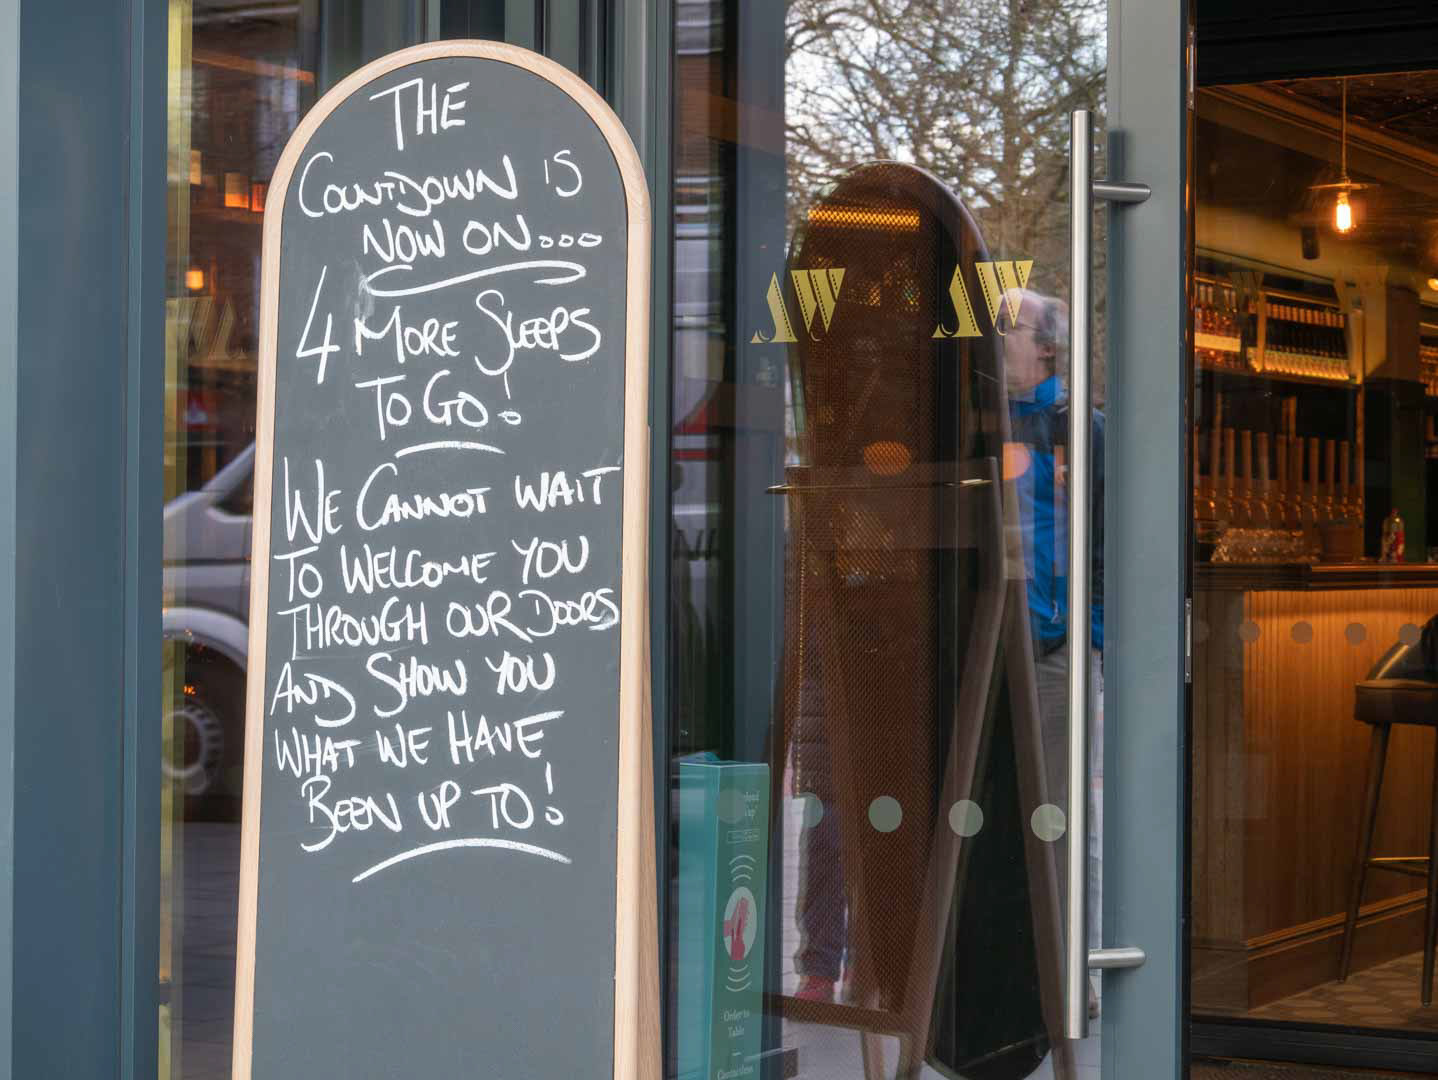 THE
COUNTDOWN IS
NOW ON...
4 MORE SLEEPS
TO GO!
WE CANNOT WAIT
TO WELCOME YOU
THROUGH OUR DOORS
AND SHOW YOU
WHAT WE HAVE
BEEN UP TO!
AW AW
Order to
Table
Contactless